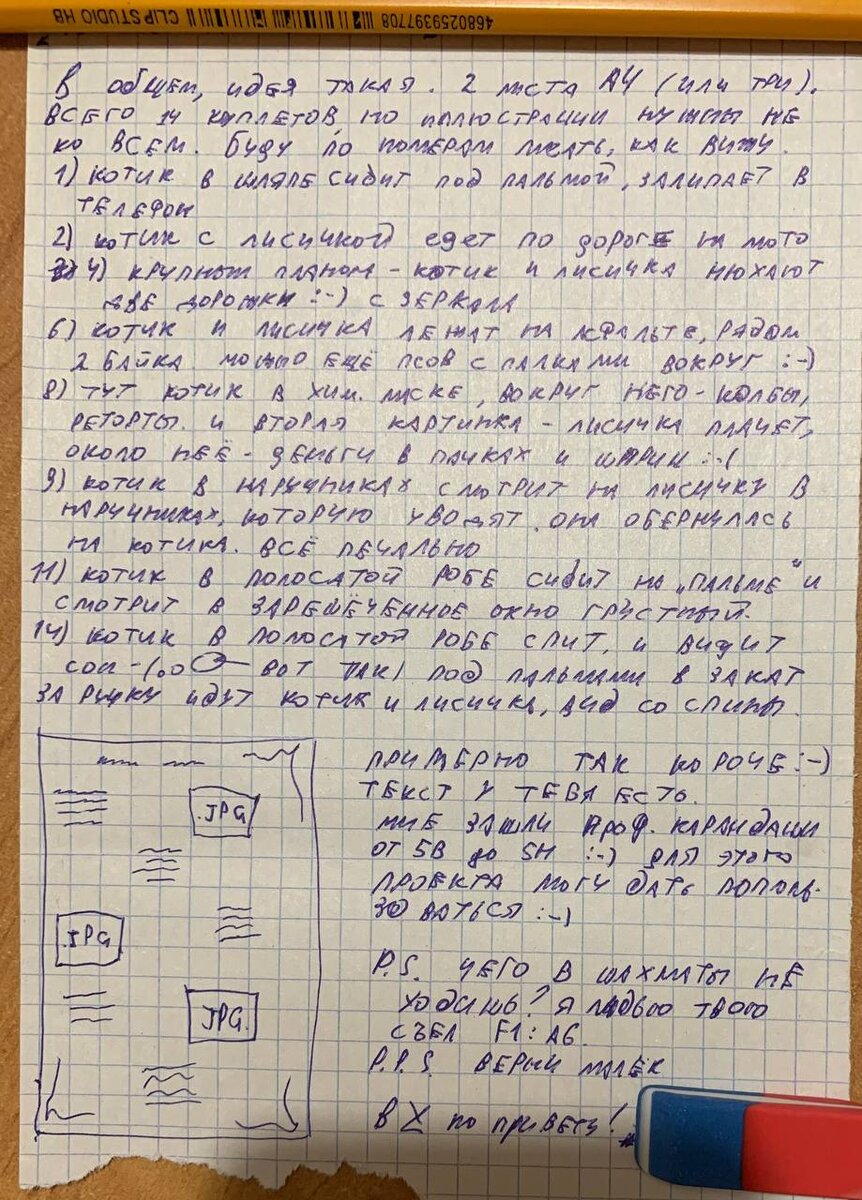 4680259397708 CLIP STUDIO HB
В общем, идея такая. 2 листа А4 (или три).
всего 14 куплетов но иллюстрации нужны не
ко всем. буду по номерам писать, как вижу.
1) котик в шляпе сидит под пальмой, залипает в
телефон
2) котик с лисичкой едет по дороге на мото
4) крупным планом - котик и лисичка нюхают
две дорожки :-) с зеркала
6) котик и лисичка лежат на асфальте, рядом
2 байка. можно ещё псов с палками вокруг :-)
8) тут котик в хим. маске, вокруг него - колбы,
реторты. и вторая картинка - лисичка плачет,
около неё - деньги в пачках и шарики :-(
9) котик в наручниках смотрит на лисичку в
наручниках, которую уводят. она обернулась
на котика. всё печально
11) котик в полосатой робе сидит на „пальме" и
смотрит в зарешёченное окно грустный.
14) котик в полосатой робе спит, и видит
сон - (вот так) под пальмами в закат
за ручку идут котик и лисичка, вид со спины.
примерно так короче :-)
текст у тебя есть.
мне зашли проф. карандаши
от 5B до 5H :-) для этого
проекта могу дать пополь-
зоваться :-)
JPG
JPG
JPG
P.S. чего в шахматы не
ходишь? я ладью твою
съел F1:A6.
P.P.S. верни малек
в Х по привету!